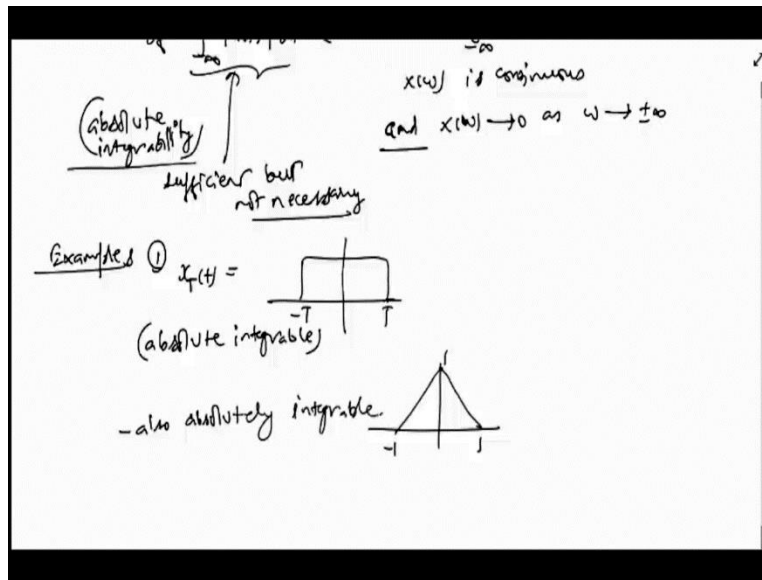 X(ω) is continuous
and X(ω) → 0 as ω → ±∞
(absolute
integrability)
sufficient but
not necessary
Examples ① x_T(t) =
-T T
(absolute integrable)
1
-also absolutely integrable
-1 1